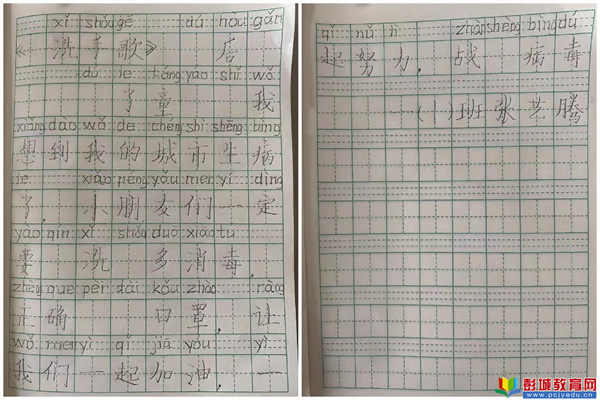 xǐ shǒu gē dú hòu gǎn
《洗手歌》 后
dú le tóng yáo shǐ wǒ
了童 我
xiǎng dào wǒ de chéng shì shēng bìng
想到我的城市生病
le xiǎo péng yǒu men yí dìng
了,小朋友们一定
yào qín xǐ shǒu duō xiāo dú
要 洗 多消毒,
zhèng què pèi dài kǒu zhào ràng
正确 口罩,让
wǒ men yì qǐ jiā yóu yì
我们一起加油,一
qǐ nǔ lì zhàn shèng bìng dú
起努力,战 病毒
(1)班张艺腾
彭城教育网
www.pcjyedu.cn